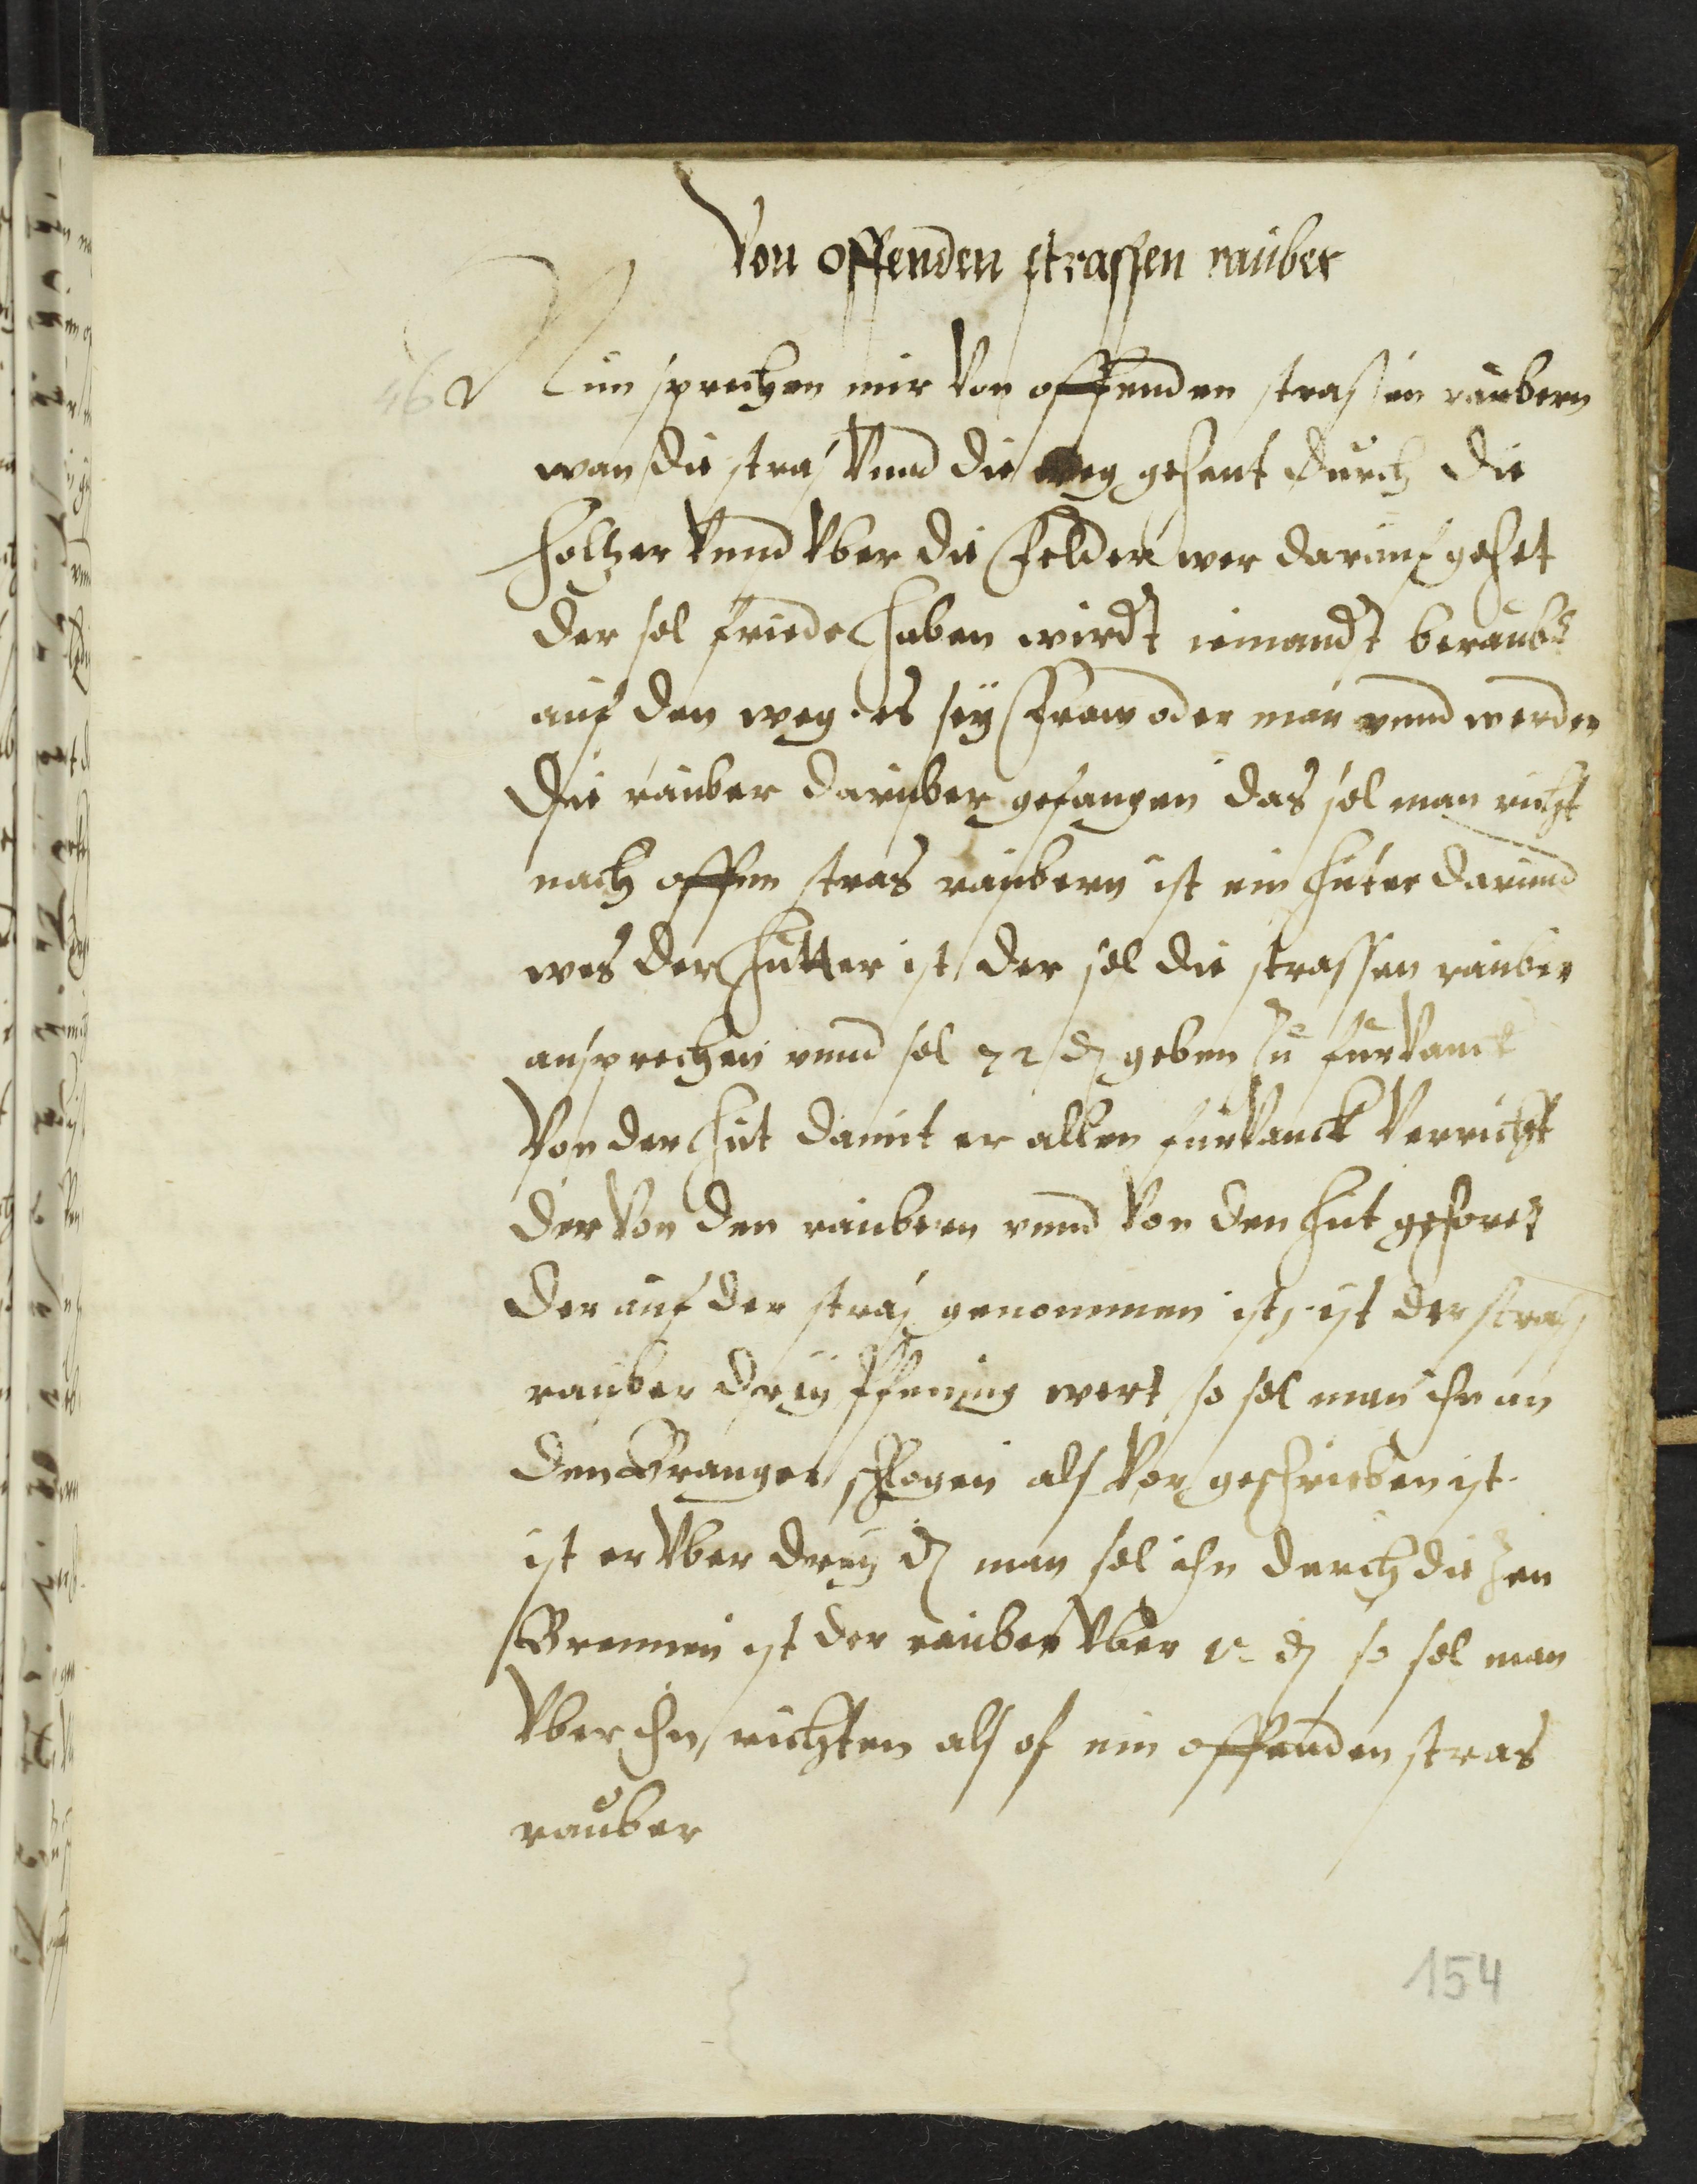 Von offenden strassen rauber
462 Nun sprechen mir von offenden strassen raubern
wan die stras vnnd die weg gehent durch die
holtzer vnnd vber die Felder wer darauf gehet
der sol friede haben wirdt iemandt beraubt
auf den weg es sey Fraw oder man vnnd werden
die rauber daruber gefangen das sol man richt
nach offen stras raubern ist ein huter darumb
wes der hutter ist der sol die strassen rauber
ansprechen vnnd sol 72 ₰ geben zu furvanck
von der hut damit er allen furvanck verricht
der von den raubern vnnd von den hut gehoret
der auf der stras genommen ist ist der stras
rauber drey pfening wert so sol man ihn an
den Branger schlagen als vor geschrieben ist
ist er vber drey ₰ man sol ihn durch die zen
Brennen ist der rauber vber 12 ₰ so sol man
vber ihn richten als of ein offenden stras
rauber
154